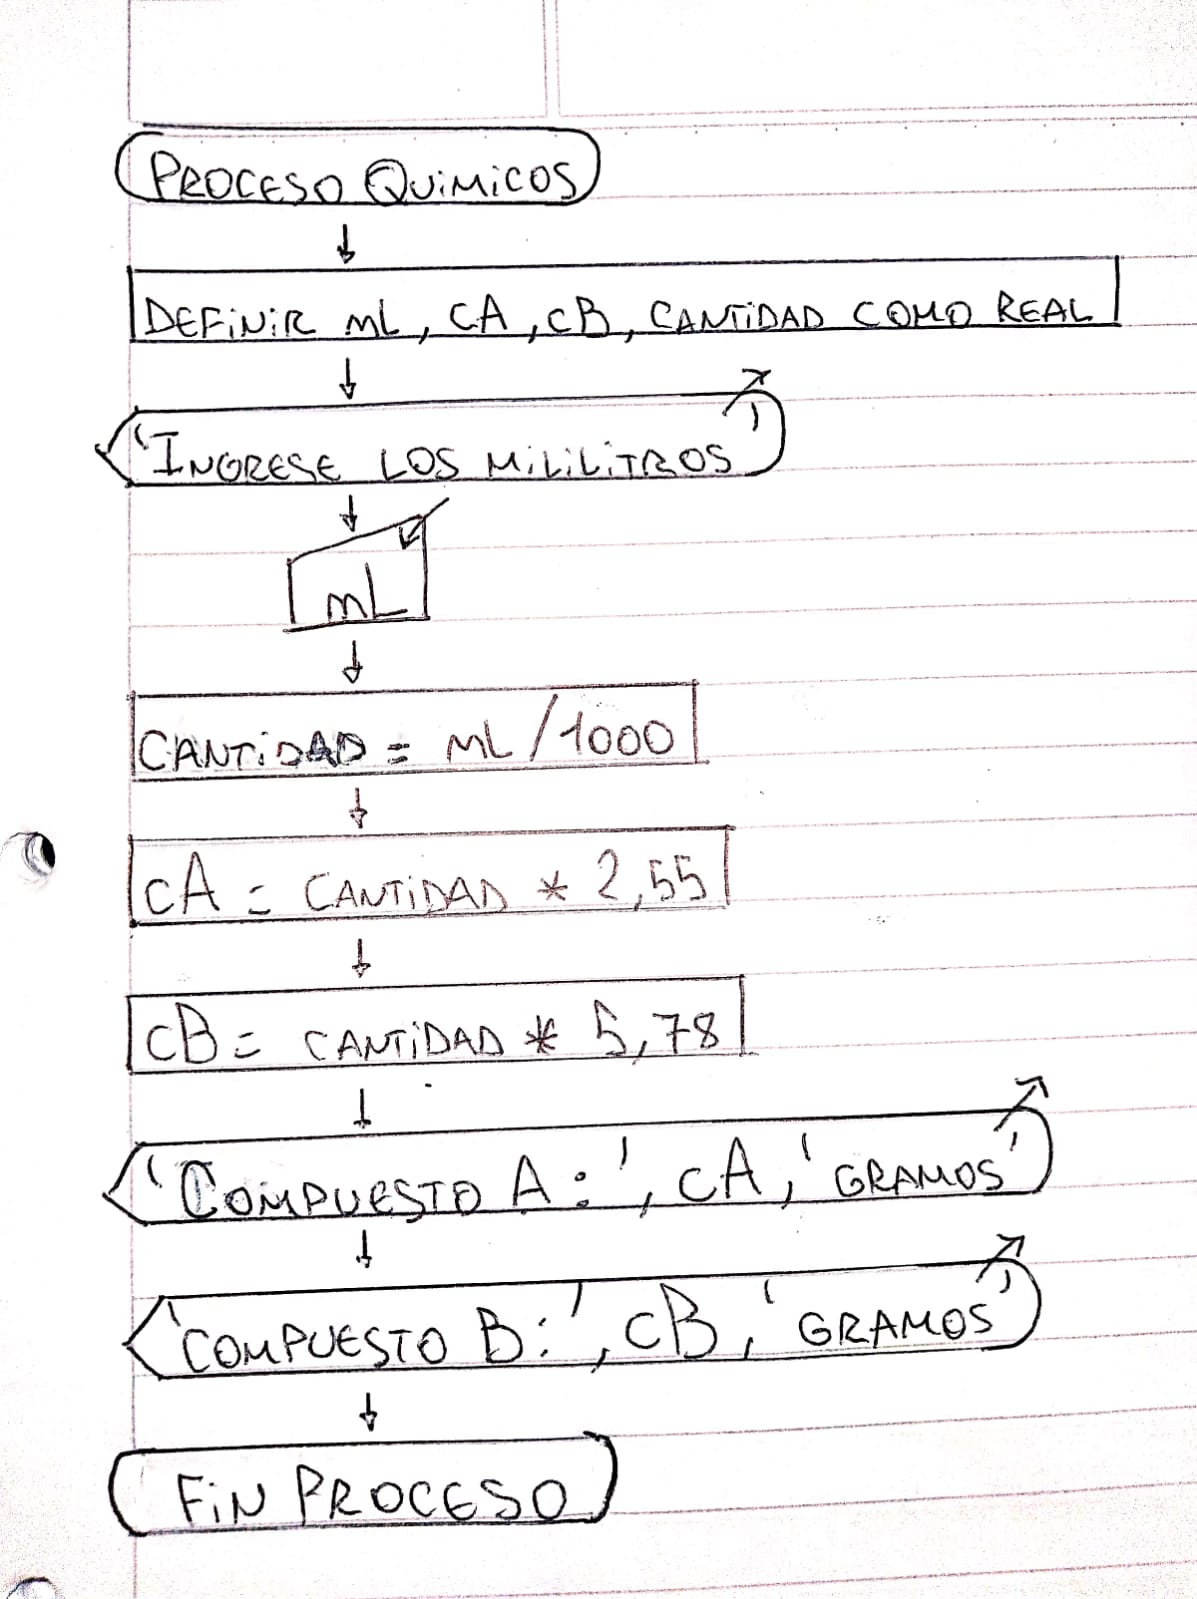 PROCESO QUiMiCOS
DEFiNiR mL, CA, CB, CANTiDAD COMO REAL
'INGRESE LOS MiLiLiTROS'
mL
CANTiDAD = mL/1000
CA = CANTiDAD * 2,55
CB = CANTiDAD * 5,78
'COMPUESTO A:', CA, 'GRAMOS'
'COMPUESTO B:', CB, 'GRAMOS'
FiN PROCESO